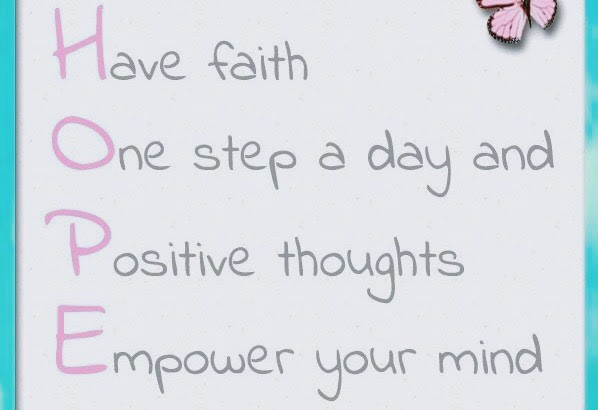 Have faith
One step a day and
Positive thoughts
Empower your mind